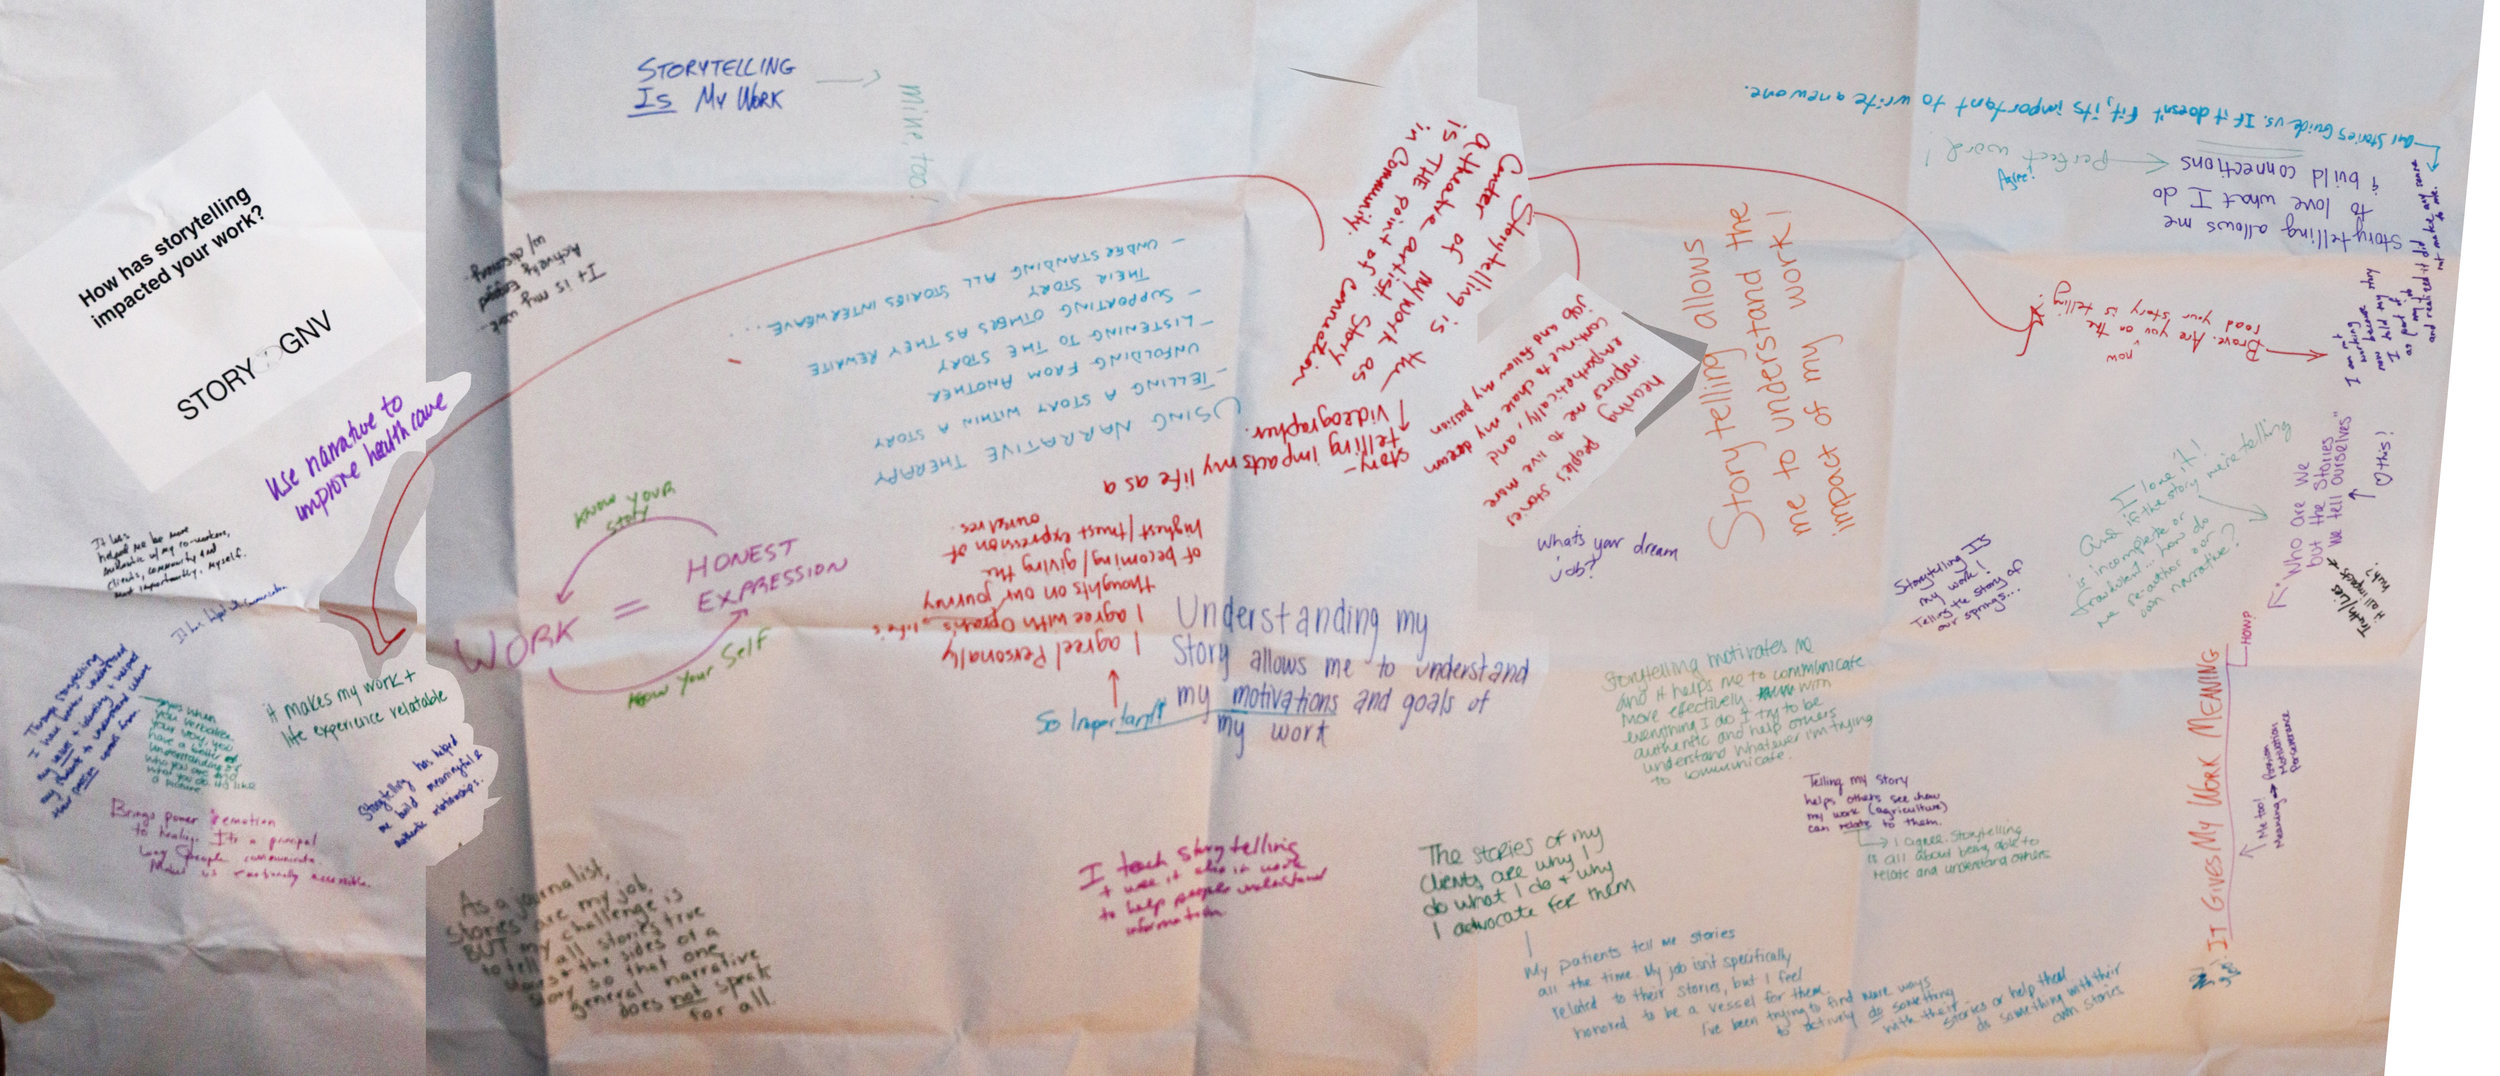 How has storytelling
impacted your work?
STORY GNV
Use narrative to
improve health care
It has
helped me be more
authentic w/ my co-workers,
clients, community and
most importantly, myself.
It has helped with communication
Through storytelling
I have better understood
my values + identity + helped
my students + understand where
their passion comes from.
yes when
you verbalize
your story, you
have a better
understanding of
who you are and
what you do. It's like
a mirror
Brings power & emotion
to healing. It's a principal
way people communicate
Makes us emotionally accessible.
it makes my work +
life experience relatable
Storytelling has helped
me build meaningful &
authentic relationships.
STORYTELLING
Is My Work
mine, too!
It is my work...
Actively Engaged
w/ discovery
USING NARRATIVE THERAPY
- TELLING A STORY WITHIN A STORY
UNFOLDING FROM ANOTHER
- LISTENING TO THE STORY
- SUPPORTING OTHERS AS THEY REWRITE
THEIR STORY
- UNDERSTANDING ALL STORIES INTERWEAVE....
Know your
story
WORK = HONEST
EXPRESSION
Know your Self
As a journalist,
stories are my job.
BUT my challenge is
to tell all stories true
stories + the sides of a
story so that one
general narrative
does not speak
for all.
Storytelling is the
Center of my work as
a theatre artist. Story
is THE point of connection
in Community.
story-
telling impacts my life as a
videographer.
hearing people's stories
inspires me to live more
empathetically, and
continue to chase my dream
job and follow my passion
What's your dream
job?
I agree! Personally
I agree with Oprah's, life's
thoughts on our journey
of becoming/giving the
highest/truest expression of
ourselves.
So Important!
Understanding my
Story allows me to understand
my motivations and goals of
my work
I teach storytelling
+ use it also in work
to help people understand
information
The stories of my
clients are why I
do what I do + why
I advocate for them
My patients tell me stories
all the time. My job isn't specifically
related to their stories, but I feel
honored to be a vessel for them.
I've been trying to find more ways
to actively do something
with their stories or help them
do something with their
own stories
Storytelling allows
me to understand the
impact of my work!
Storytelling motivates me
and it helps me to communicate
more effectively with
everything I do I try to be
authentic and help others
understand whatever I'm trying
to communicate.
Telling my story
helps others see how
my work (agriculture)
can relate to them.
I agree. Storytelling
is all about being able to
relate and understand others
Storytelling IS
my work!
Telling the story of
our springs...
Our Stories Guide us. If it doesn't fit, its important to write a new one.
Storytelling allows me
to love what I do
& build connections
Perfect word!
Agree!
Brave. Are you on the
road your story is telling
now
I am not
working
now because
I told my story
as part of
my job
and realized it did
not make any sense
to me.
"Who are we
but the stories
we tell ourselves"
♡ this!
I love it!
And if the story we're telling
is incomplete or
fraudulent... how do
we re-author our
own narrative?
Truth/Lies
it all impacts
huh?
HOW?
IT GIVES MY WORK MEANING
Me too!
Meaning → Passion
Motivation
Perseverance